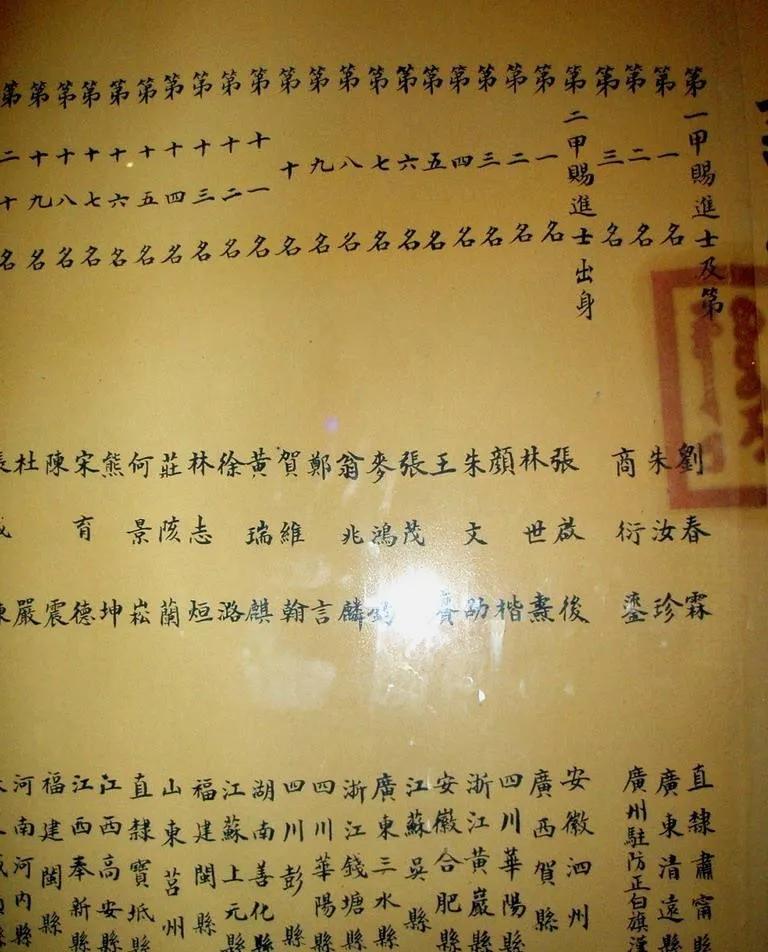 第一甲賜進士及第
第一名 劉春霖 直隸肅寧縣
第二名 朱汝珍 廣東清遠縣
第三名 商衍鎏 廣州駐防正白旗漢
第二甲賜進士出身
第一名 張啟後 安徽泗州
第二名 林世燾 廣西賀縣
第三名 顏楷 四川華陽縣
第四名 朱文劭 浙江黃巖縣
第五名 王賡 安徽合肥縣
第六名 張茂 江蘇吳縣
第七名 麥鴻鈞 廣東三水縣
第八名 翁兆麟 浙江錢塘縣
第九名 鄭言 四川華陽縣
第十名 賀維翰 四川彭縣
第十一名 黃瑞麒 湖南善化縣
第十二名 徐潞 江蘇上元縣
第十三名 林志烜 福建閩縣
第十四名 莊陔蘭 山東莒州
第十五名 何景崧 直隸寶坻縣
第十六名 熊坤 江西高安縣
第十七名 宋育德 江西奉新縣
第十八名 陳震 福建閩縣
第十九名 杜嚴 河南河內縣
第二十名